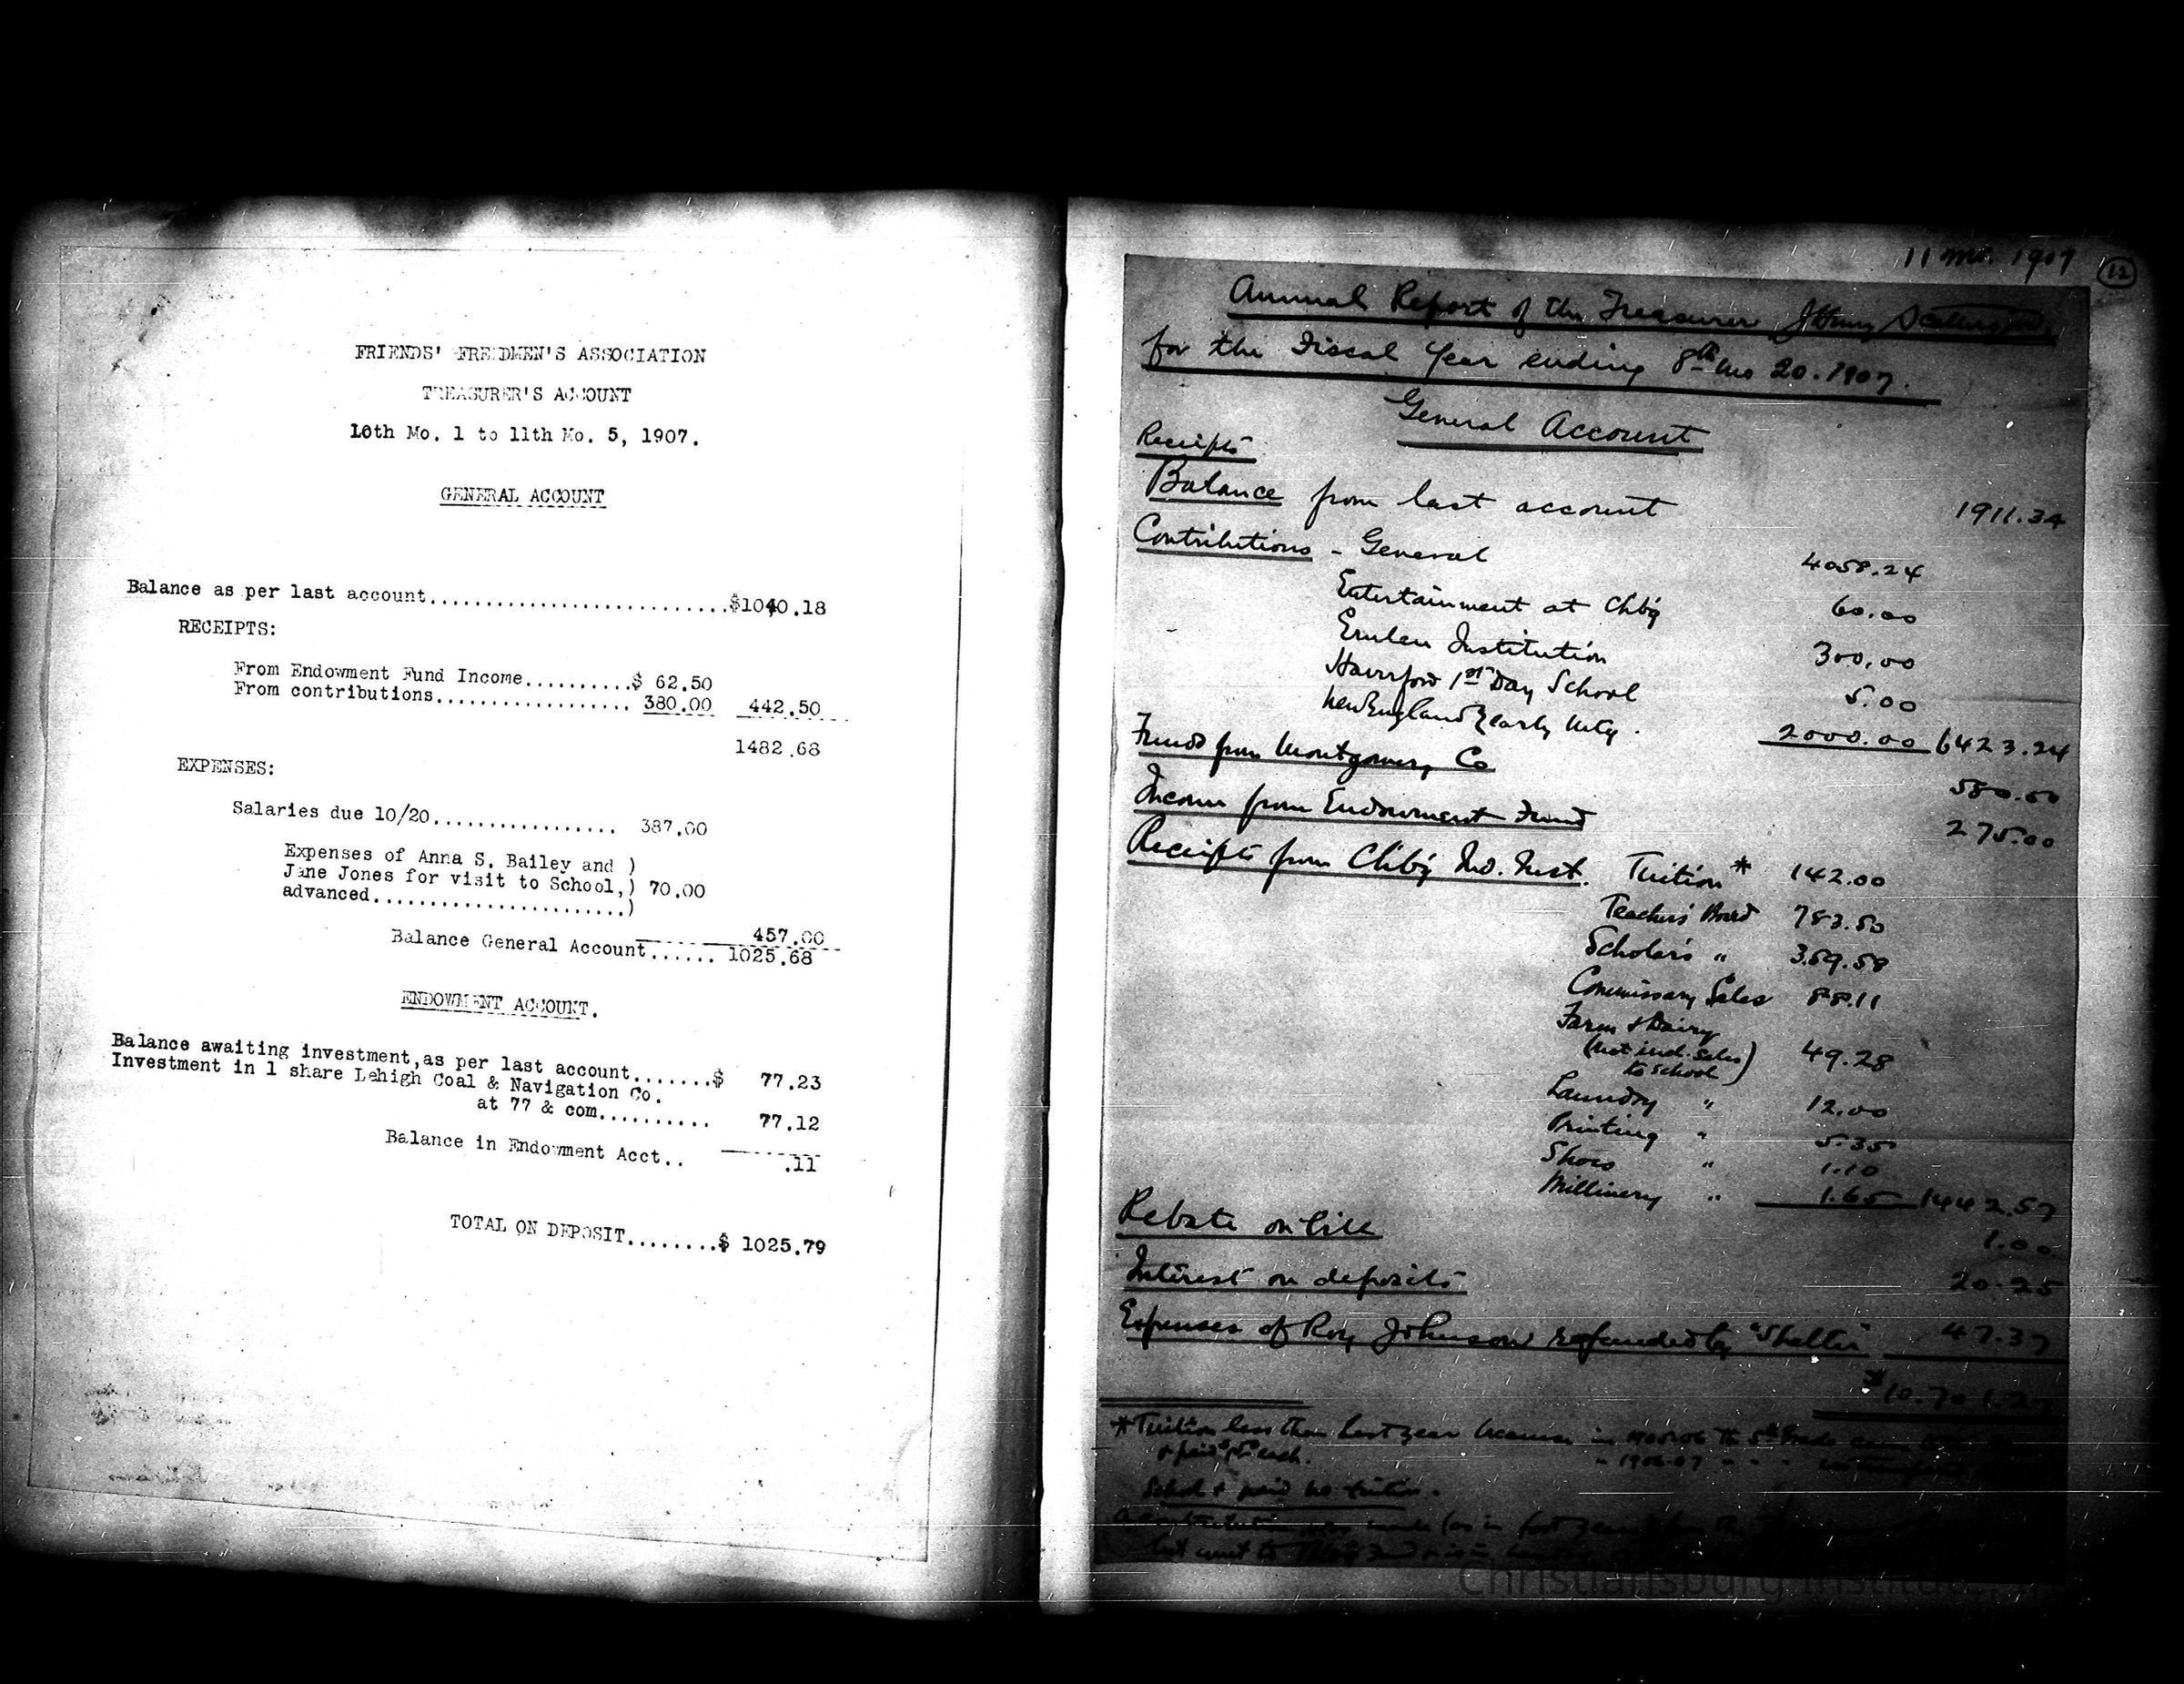 FRIENDS' FREEDMEN'S ASSOCIATION
TREASURER'S ACCOUNT
10th Mo. 1 to 11th Mo. 5, 1907.
GENERAL ACCOUNT
Balance as per last account...........................$1040.18
RECEIPTS:
From Endowment Fund Income..........$ 62.50
From contributions.................. 380.00 442.50
1482.68
EXPENSES:
Salaries due 10/20................. 387.00
Expenses of Anna S. Bailey and )
Jane Jones for visit to School,) 70.00
advanced.......................)
457.00
Balance General Account...... 1025.68
ENDOWMENT ACCOUNT.
Balance awaiting investment,as per last account.......$ 77.23
Investment in 1 share Lehigh Coal & Navigation Co.
at 77 & com.......... 77.12
Balance in Endowment Acct.. .11
TOTAL ON DEPOSIT........$ 1025.79
11 mo. 1907 12
Annual Report of the Treasurer J Henry
for the Fiscal Year ending 8th mo 20. 1907.
General Account
Receipts
Balance from last account 1911.34
Contributions - General 4058.24
Entertainment at Chbg 60.00
Emlen Institution 300.00
Haverford 1st Day School 5.00
New England Yearly Mtg. 2000.00 6423.24
Funds from Montgomery Co 580.50
Income from Endowment Fund 275.00
Receipts from Chbg Ind. Inst. Tuition * 142.00
Teachers' Board 783.50
Scholars " 359.58
Commissary Sales 88.11
Farm & Dairy
(not incl. sales
to school) 49.28
Laundry " 12.00
Printing " 5.35
Shoes " 1.10
Millinery " 1.65 1442.57
Rebate on bill 1.00
Interest on deposits 20.25
Expenses of Roy Johnson refunded by "Shelter" 47.37
$10.701.27
* Tuition less than last year because in 1905-06 the 5th Grade
& paid each. " 1906-07 " " "
School & paid no tuition.
Christiansburg Institute